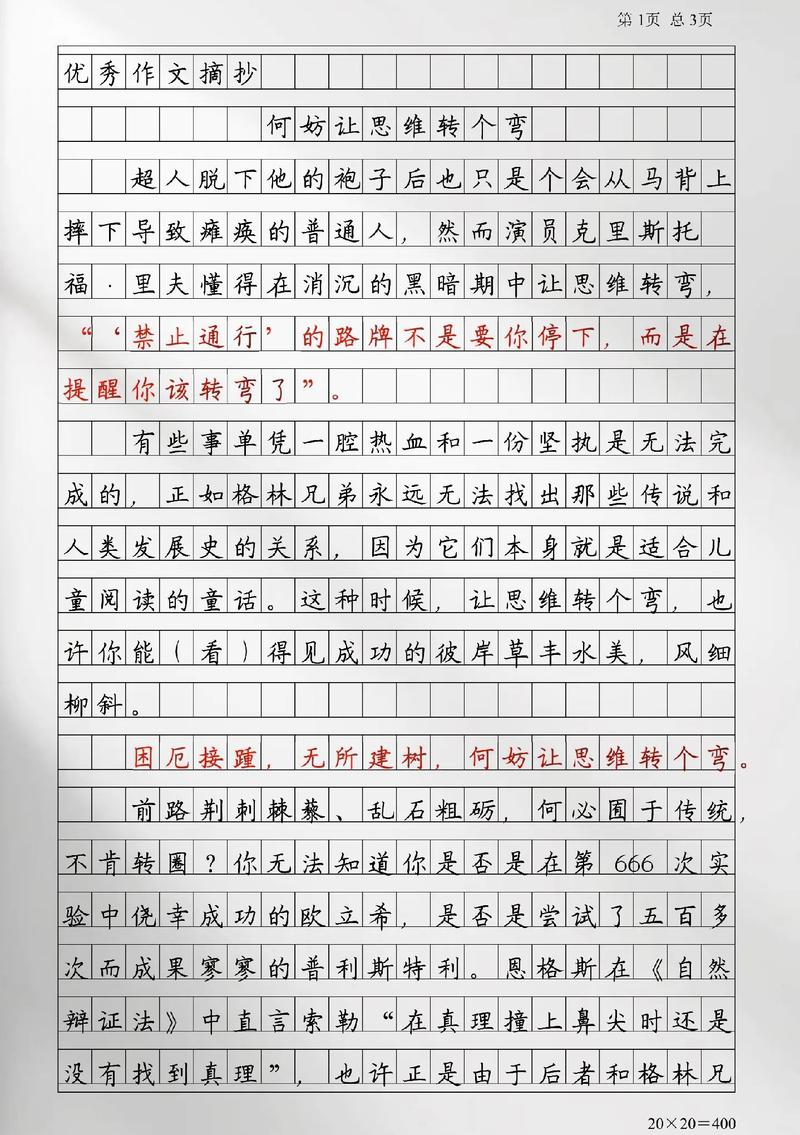 第1页 总3页
优秀作文摘抄
何妨让思维转个弯
超人脱下他的袍子后也只是个会从马背上
摔下导致瘫痪的普通人，然而演员克里斯托
福·里夫懂得在消沉的黑暗期中让思维转弯，
“‘禁止通行’的路牌不是要你停下，而是在
提醒你该转弯了”。
有些事单凭一腔热血和一份坚执是无法完
成的，正如格林兄弟永远无法找出那些传说和
人类发展史的关系，因为它们本身就是适合儿
童阅读的童话。这种时候，让思维转个弯，也
许你能（看）得见成功的彼岸草丰水美，风细
柳斜。
困厄接踵，无所建树，何妨让思维转个弯。
前路荆刺棘藜、乱石粗砺，何必囿于传统，
不肯转圈？你无法知道你是否是在第 666 次实
验中侥幸成功的欧立希，是否是尝试了五百多
次而成果寥寥的普利斯特利。恩格斯在《自然
辩证法》中直言索勒“在真理撞上鼻尖时还是
没有找到真理”，也许正是由于后者和格林兄
20×20=400